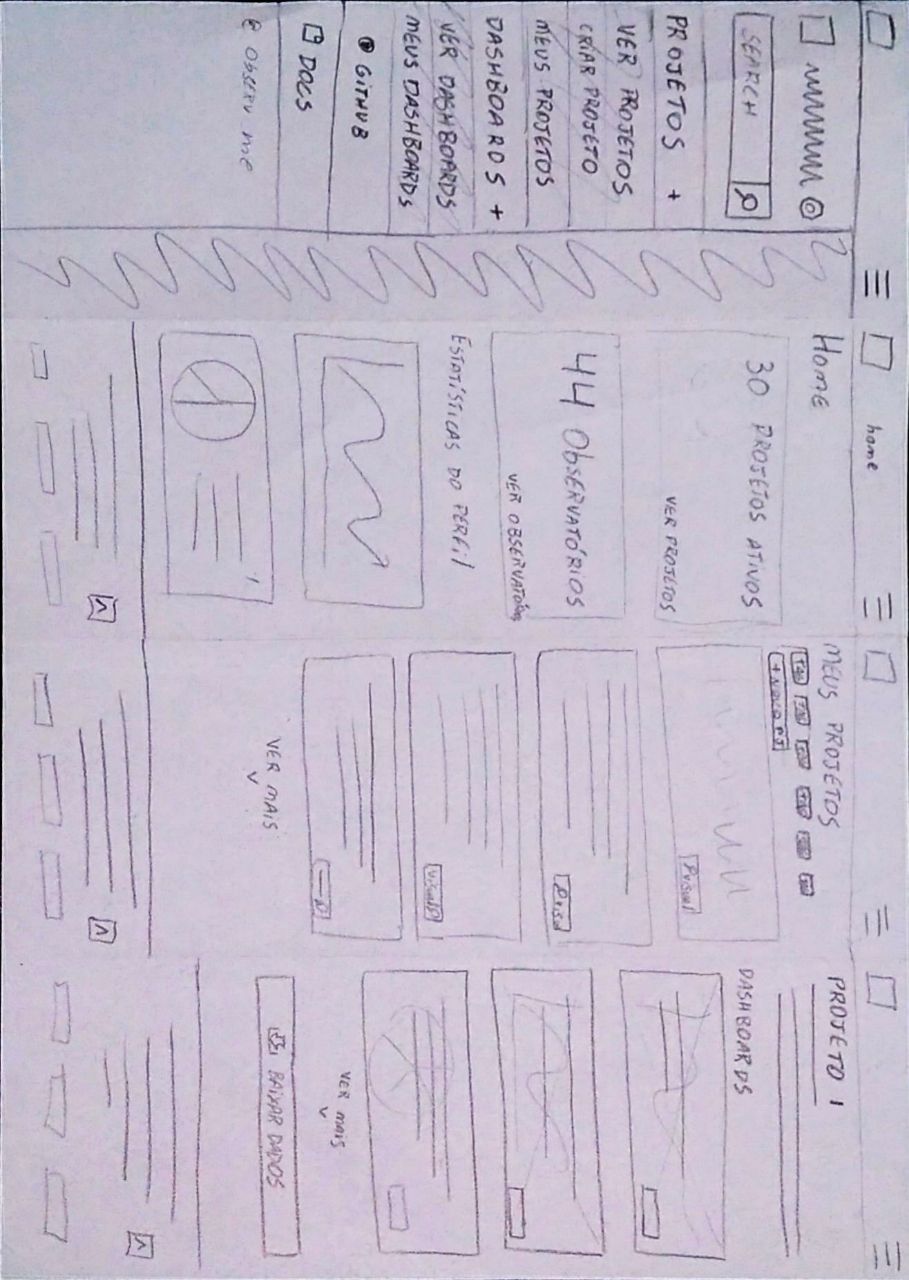 SEARCH
PROJETOS +
VER PROJETOS
CRIAR PROJETO
MEUS PROJETOS
DASHBOARDS +
VER DASHBOARDS
MEUS DASHBOARDS
GITHUB
DOCS
OBSERV me
home
HOME
30 PROJETOS ATIVOS
VER PROJETOS
44 OBSERVATÓRIOS
VER OBSERVATÓRIOS
ESTATÍSTICAS DO PERFIL
MEUS PROJETOS
+ NOVO PJ
VER MAIS
PROJETO 1
DASHBOARDS
VER MAIS
BAIXAR DADOS